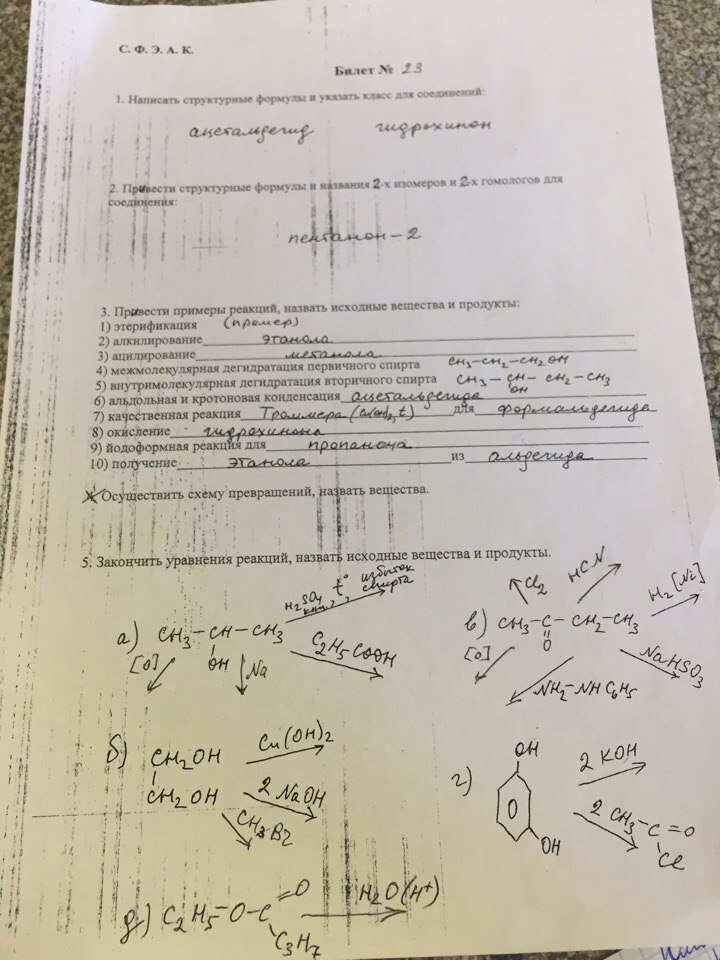 С. Ф. Э. А. К.
Билет № 23
1. Написать структурные формулы и указать класс для соединений:
ацетальдегид гидрохинон
2. Привести структурные формулы и названия 2-х изомеров и 2-х гомологов для
соединения:
пентанон-2
3. Привести примеры реакций, назвать исходные вещества и продукты:
1) этерификация (пример)
2) алкилирование этанола
3) ацилирование метанола
4) межмолекулярная дегидратация первичного спирта CH3-CH2-CH2OH
5) внутримолекулярная дегидратация вторичного спирта CH3-CH-CH2-CH3
OH
6) альдольная и кротоновая конденсация ацетальдегида
7) качественная реакция Троммера (Cu(OH)2, t) для формальдегида
8) окисление гидрохинона
9) йодоформная реакция для пропанона
10) получение этанола из альдегида
4. Осуществить схему превращений, назвать вещества.
5. Закончить уравнения реакций, назвать исходные вещества и продукты.
а) CH3-CH-CH3
OH
H2SO4 конц., t° избыток спирта
C2H5COOH
[O]
Na
в) CH3-C-CH2-CH3
O
Cl2
HCN
H2[Ni]
[O]
NH2-NHC6H5
NaHSO3
б) CH2OH
CH2OH
Cu(OH)2
2 NaOH
CH3Br
г) OH
OH
2 KOH
2 CH3-C=O
Cl
д) C2H5-O-C=O
C3H7
H2O(H+)